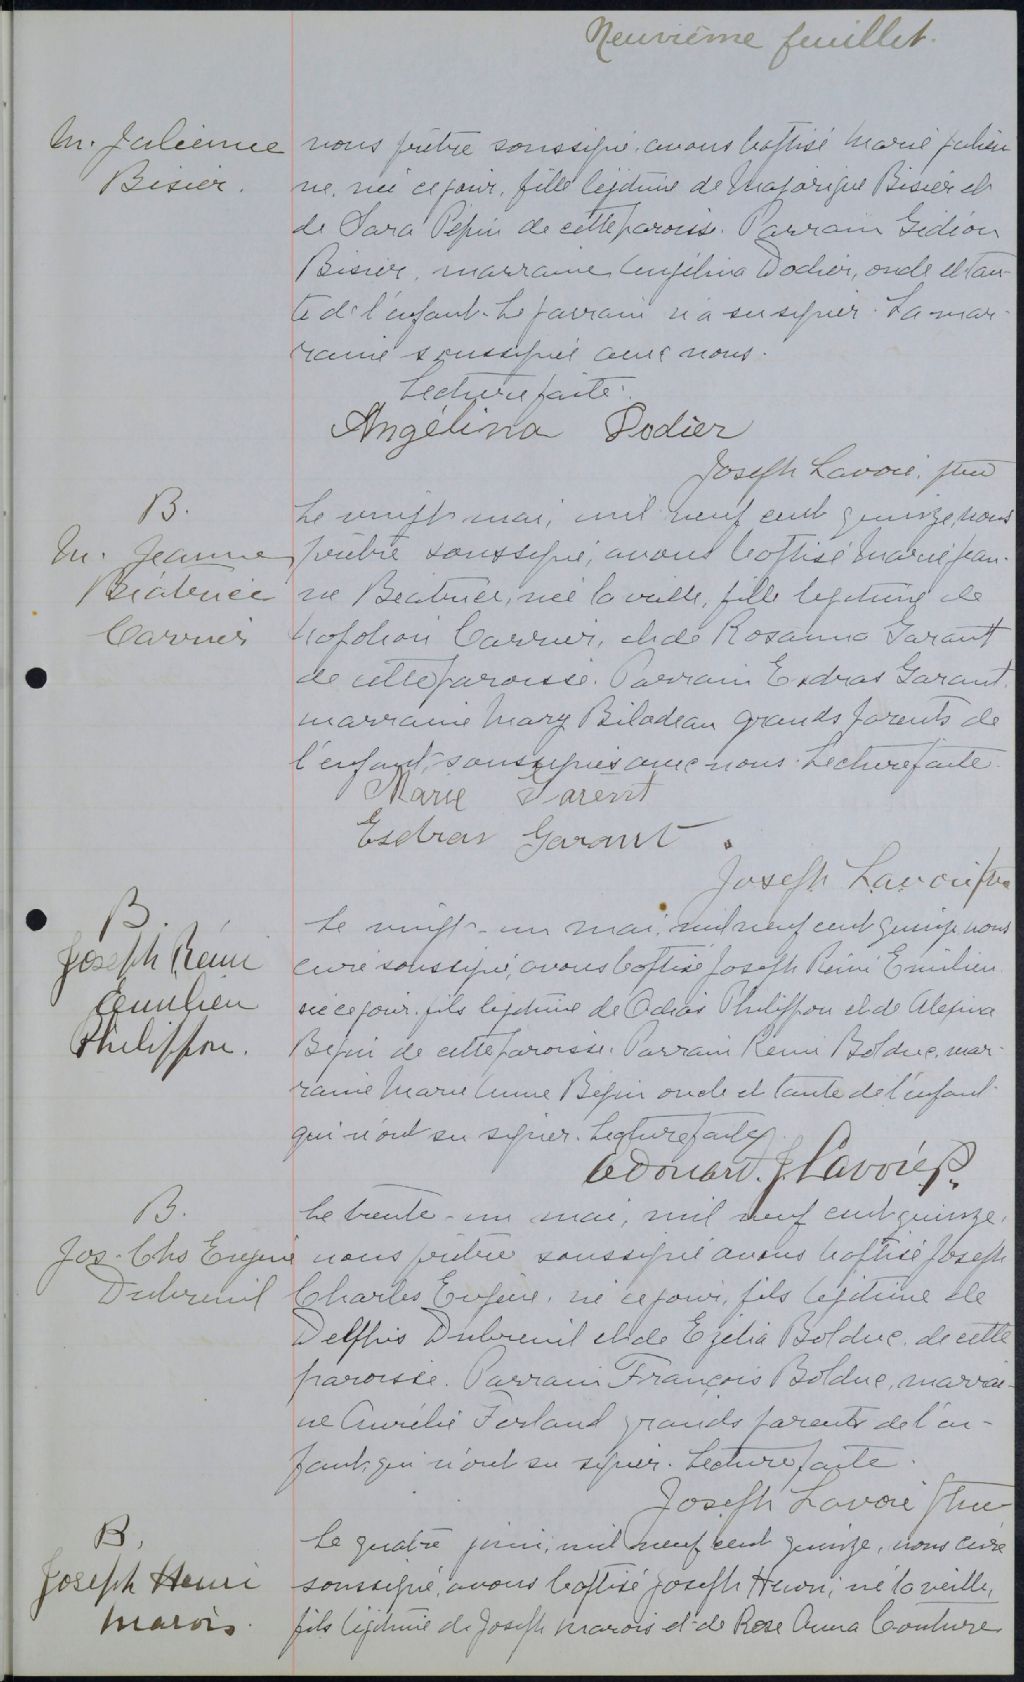 Neuvième feuillet.
M. Julienne
Bisier.
nous prêtre soussigné, avons baptisé Marie Julien
ne, née ce jour, fille légitime de Majorique Bisier et
de Sara Pépin de cette paroisse. Parrain Gédéon
Bisier, marraine Angélina Dodier, oncle et tan-
te de l'enfant. Le parrain n'a su signer. La mar-
raine soussignée avec nous.
Lecture faite.
Angélina Dodier
Joseph Lavoie, ptre
B.
M. Jeanne
Béatrice
Carrier
Le vingt mai, mil neuf cent quinze, nous
prêtre soussigné, avons baptisé Marie Jean-
ne Béatrice, née la veille, fille légitime de
Napoléon Carrier, et de Rosanna Garant
de cette paroisse. Parrain Esdras Garant,
marraine Mary Bilodeau grands parents de
l'enfant, soussignés avec nous. Lecture faite.
Marie Parent
Esdras Garant
Joseph Lavoie ptre
B.
Joseph Rémi
Émilien
Philippon.
Le vingt-un mai, mil neuf cent quinze nous
curé soussigné, avons baptisé Joseph Rémi Emilien
né ce jour, fils légitime de Odias Philippon et de Alexina
Bégin de cette paroisse. Parrain Rémi Bolduc, mar-
raine Marie Anne Bégin oncle et tante de l'enfant
qui n'ont su signer. Lecture faite.
Edouard J. Lavoie P.
B.
Jos-Chs Eugène
Dubreuil
Le trente-un mai, mil neuf cent quinze,
nous prêtre soussigné avons baptisé Joseph
Charles Eugène, né ce jour, fils légitime de
Delphis Dubreuil et de Ezélia Bolduc, de cette
paroisse. Parrain François Bolduc, marrai-
ne Aurélie Ferland grands parents de l'en-
fant, qui n'ont su signer. Lecture faite.
Joseph Lavoie ptre
B,
Joseph Henri
Marois.
Le quatre juin, mil neuf cent quinze, nous curé
soussigné, avons baptisé Joseph Henri, né la veille,
fils légitime de Joseph Marois et de Rose Anna Couture